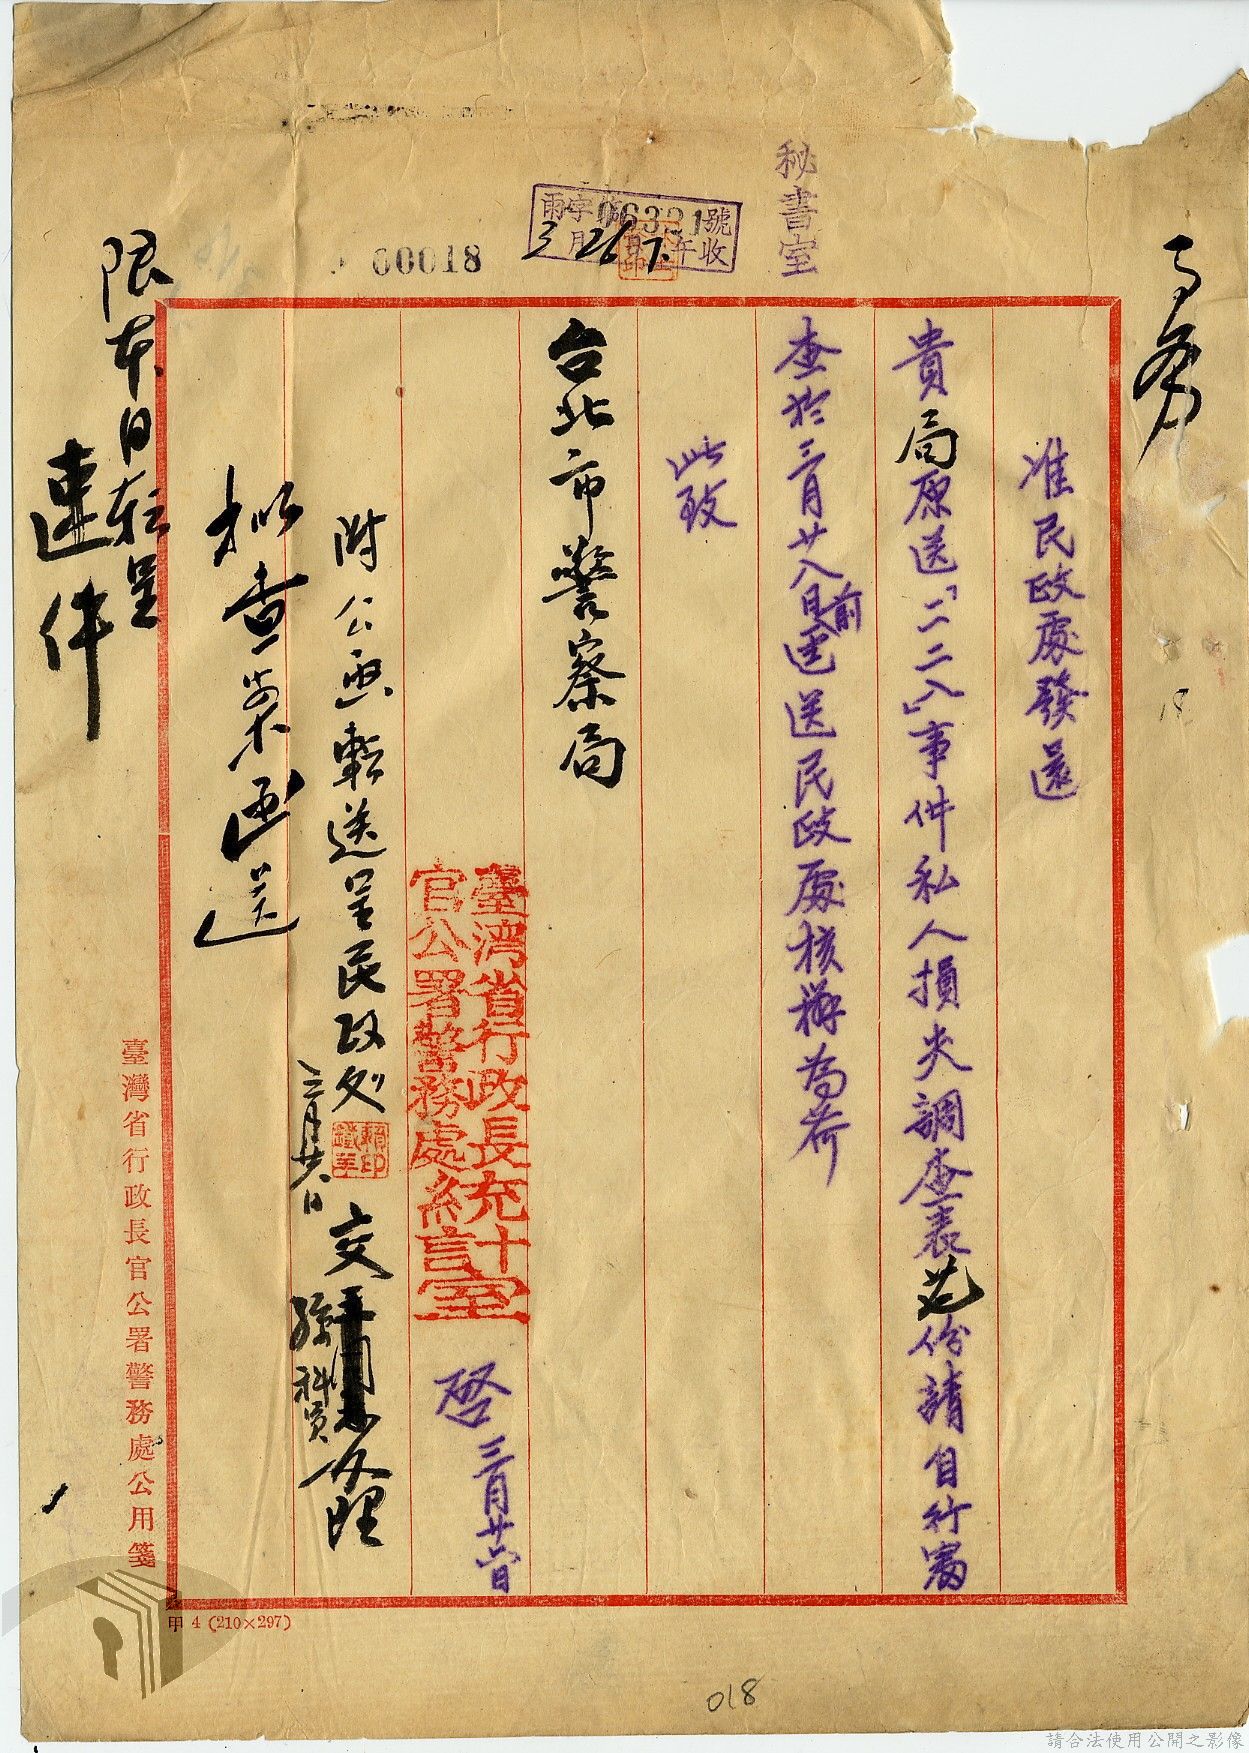 秘書室
雨字第06321號
3月26日 午收
00018
准民政處發還
貴局原送「二二八」事件私人損失調查表 份請自行審
查於三月廿八日前逕送民政處核辦為荷
此致
台北市警察局
臺灣省行政長
官公署警務處統計室
啓 三月廿 日
附公函轉送呈民政処
賴印
三月廿六日
交 辦理
科員
擬查案函送
限本日轉呈
速件
臺灣省行政長官公署警務處公用箋
甲 4 (210×297)
018
請合法使用公開之影像